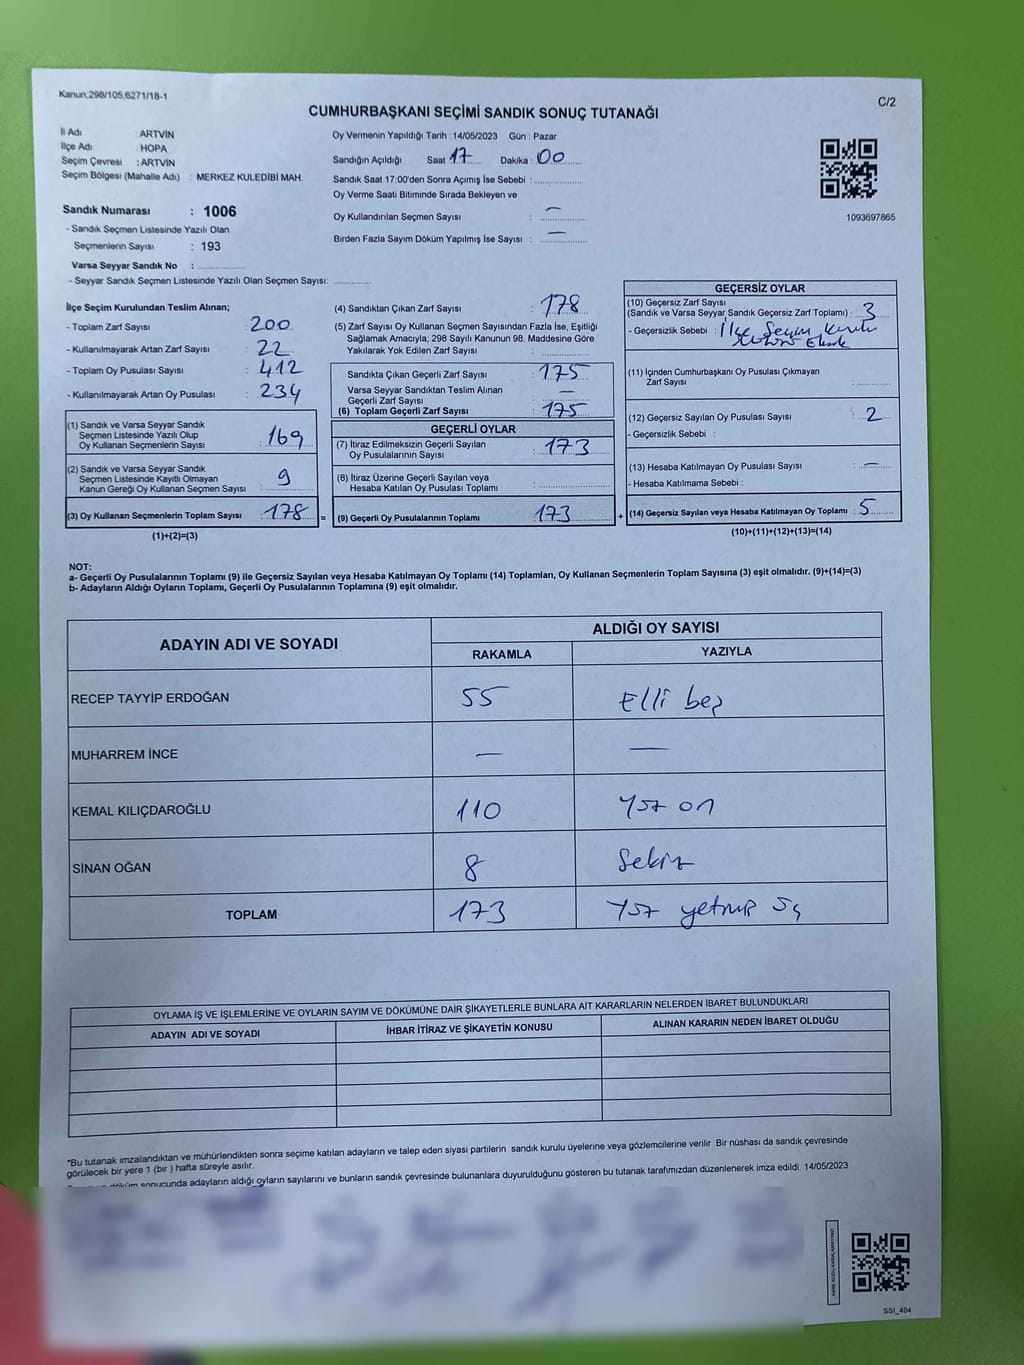 Kanun:298/105,6271/18-1
C/2
CUMHURBAŞKANI SEÇİMİ SANDIK SONUÇ TUTANAĞI
İl Adı : ARTVİN
İlçe Adı : HOPA
Seçim Çevresi : ARTVİN
Seçim Bölgesi (Mahalle Adı) : MERKEZ KULEDİBİ MAH.
Sandık Numarası : 1006
- Sandık Seçmen Listesinde Yazılı Olan
Seçmenlerin Sayısı : 193
Varsa Seyyar Sandık No :
- Seyyar Sandık Seçmen Listesinde Yazılı Olan Seçmen Sayısı:
Oy Vermenin Yapıldığı Tarih : 14/05/2023 Gün : Pazar
Sandığın Açıldığı Saat 17 Dakika : 00
Sandık Saat 17:00'den Sonra Açımış İse Sebebi :
Oy Verme Saati Bitiminde Sırada Bekleyen ve
Oy Kullandırılan Seçmen Sayısı : —
Birden Fazla Sayım Döküm Yapılmış İse Sayısı : —
1093697865
İlçe Seçim Kurulundan Teslim Alınan;
- Toplam Zarf Sayısı : 200
- Kullanılmayarak Artan Zarf Sayısı : 22
- Toplam Oy Pusulası Sayısı : 412
- Kullanılmayarak Artan Oy Pusulası : 234
(1) Sandık ve Varsa Seyyar Sandık
Seçmen Listesinde Yazılı Olup
Oy Kullanan Seçmenlerin Sayısı : 169
(2) Sandık ve Varsa Seyyar Sandık
Seçmen Listesinde Kayıtlı Olmayan
Kanun Gereği Oy Kullanan Seçmen Sayısı : 9
(3) Oy Kullanan Seçmenlerin Toplam Sayısı : 178 =
(1)+(2)=(3)
(4) Sandıktan Çıkan Zarf Sayısı : 178
(5) Zarf Sayısı Oy Kullanan Seçmen Sayısından Fazla İse, Eşitliği
Sağlamak Amacıyla; 298 Sayılı Kanunun 98. Maddesine Göre
Yakılarak Yok Edilen Zarf Sayısı :
Sandıkta Çıkan Geçerli Zarf Sayısı : 175
Varsa Seyyar Sandıktan Teslim Alınan
Geçerli Zarf Sayısı : —
(6) Toplam Geçerli Zarf Sayısı : 175
GEÇERLİ OYLAR
(7) İtiraz Edilmeksizin Geçerli Sayılan
Oy Pusulalarının Sayısı : 173
(8) İtiraz Üzerine Geçerli Sayılan veya
Hesaba Katılan Oy Pusulası Toplamı :
(9) Geçerli Oy Pusulalarının Toplamı : 173 +
GEÇERSİZ OYLAR
(10) Geçersiz Zarf Sayısı
(Sandık ve Varsa Seyyar Sandık Geçersiz Zarf Toplamı) : 3
- Geçersizlik Sebebi : İlçe Seçim Kurulu
(11) İçinden Cumhurbaşkanı Oy Pusulası Çıkmayan
Zarf Sayısı :
(12) Geçersiz Sayılan Oy Pusulası Sayısı : 2
- Geçersizlik Sebebi :
(13) Hesaba Katılmayan Oy Pusulası Sayısı : —
- Hesaba Katılmama Sebebi :
(14) Geçersiz Sayılan veya Hesaba Katılmayan Oy Toplamı : 5
(10)+(11)+(12)+(13)=(14)
NOT:
a- Geçerli Oy Pusulalarının Toplamı (9) ile Geçersiz Sayılan veya Hesaba Katılmayan Oy Toplamı (14) Toplamları, Oy Kullanan Seçmenlerin Toplam Sayısına (3) eşit olmalıdır. (9)+(14)=(3)
b- Adayların Aldığı Oyların Toplamı, Geçerli Oy Pusulalarının Toplamına (9) eşit olmalıdır.
ADAYIN ADI VE SOYADI ALDIĞI OY SAYISI
RAKAMLA YAZIYLA
RECEP TAYYİP ERDOĞAN 55 Elli beş
MUHARREM İNCE — —
KEMAL KILIÇDAROĞLU 110 Yüz on
SİNAN OĞAN 8 Sekiz
TOPLAM 173 Yüz yetmiş üç
OYLAMA İŞ VE İŞLEMLERİNE VE OYLARIN SAYIM VE DÖKÜMÜNE DAİR ŞİKAYETLERLE BUNLARA AİT KARARLARIN NELERDEN İBARET BULUNDUKLARI
ADAYIN ADI VE SOYADI İHBAR İTİRAZ VE ŞİKAYETİN KONUSU ALINAN KARARIN NEDEN İBARET OLDUĞU
*Bu tutanak imzalandıktan ve mühürlendikten sonra seçime katılan adayların ve talep eden siyasi partilerin sandık kurulu üyelerine veya gözlemcilerine verilir .Bir nüshası da sandık çevresinde
görülecek bir yere 1 (bir ) hafta süreyle asılır.
döküm sonucunda adayların aldığı oyların sayılarını ve bunların sandık çevresinde bulunanlara duyurulduğunu gösteren bu tutanak tarafımızdan düzenlenerek imza edildi 14/05/2023
SSI_404